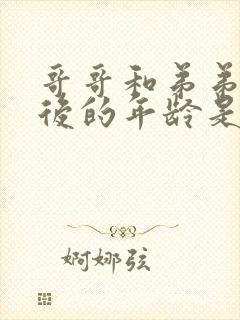 哥哥和弟弟
後的年龄是
婀娜弦